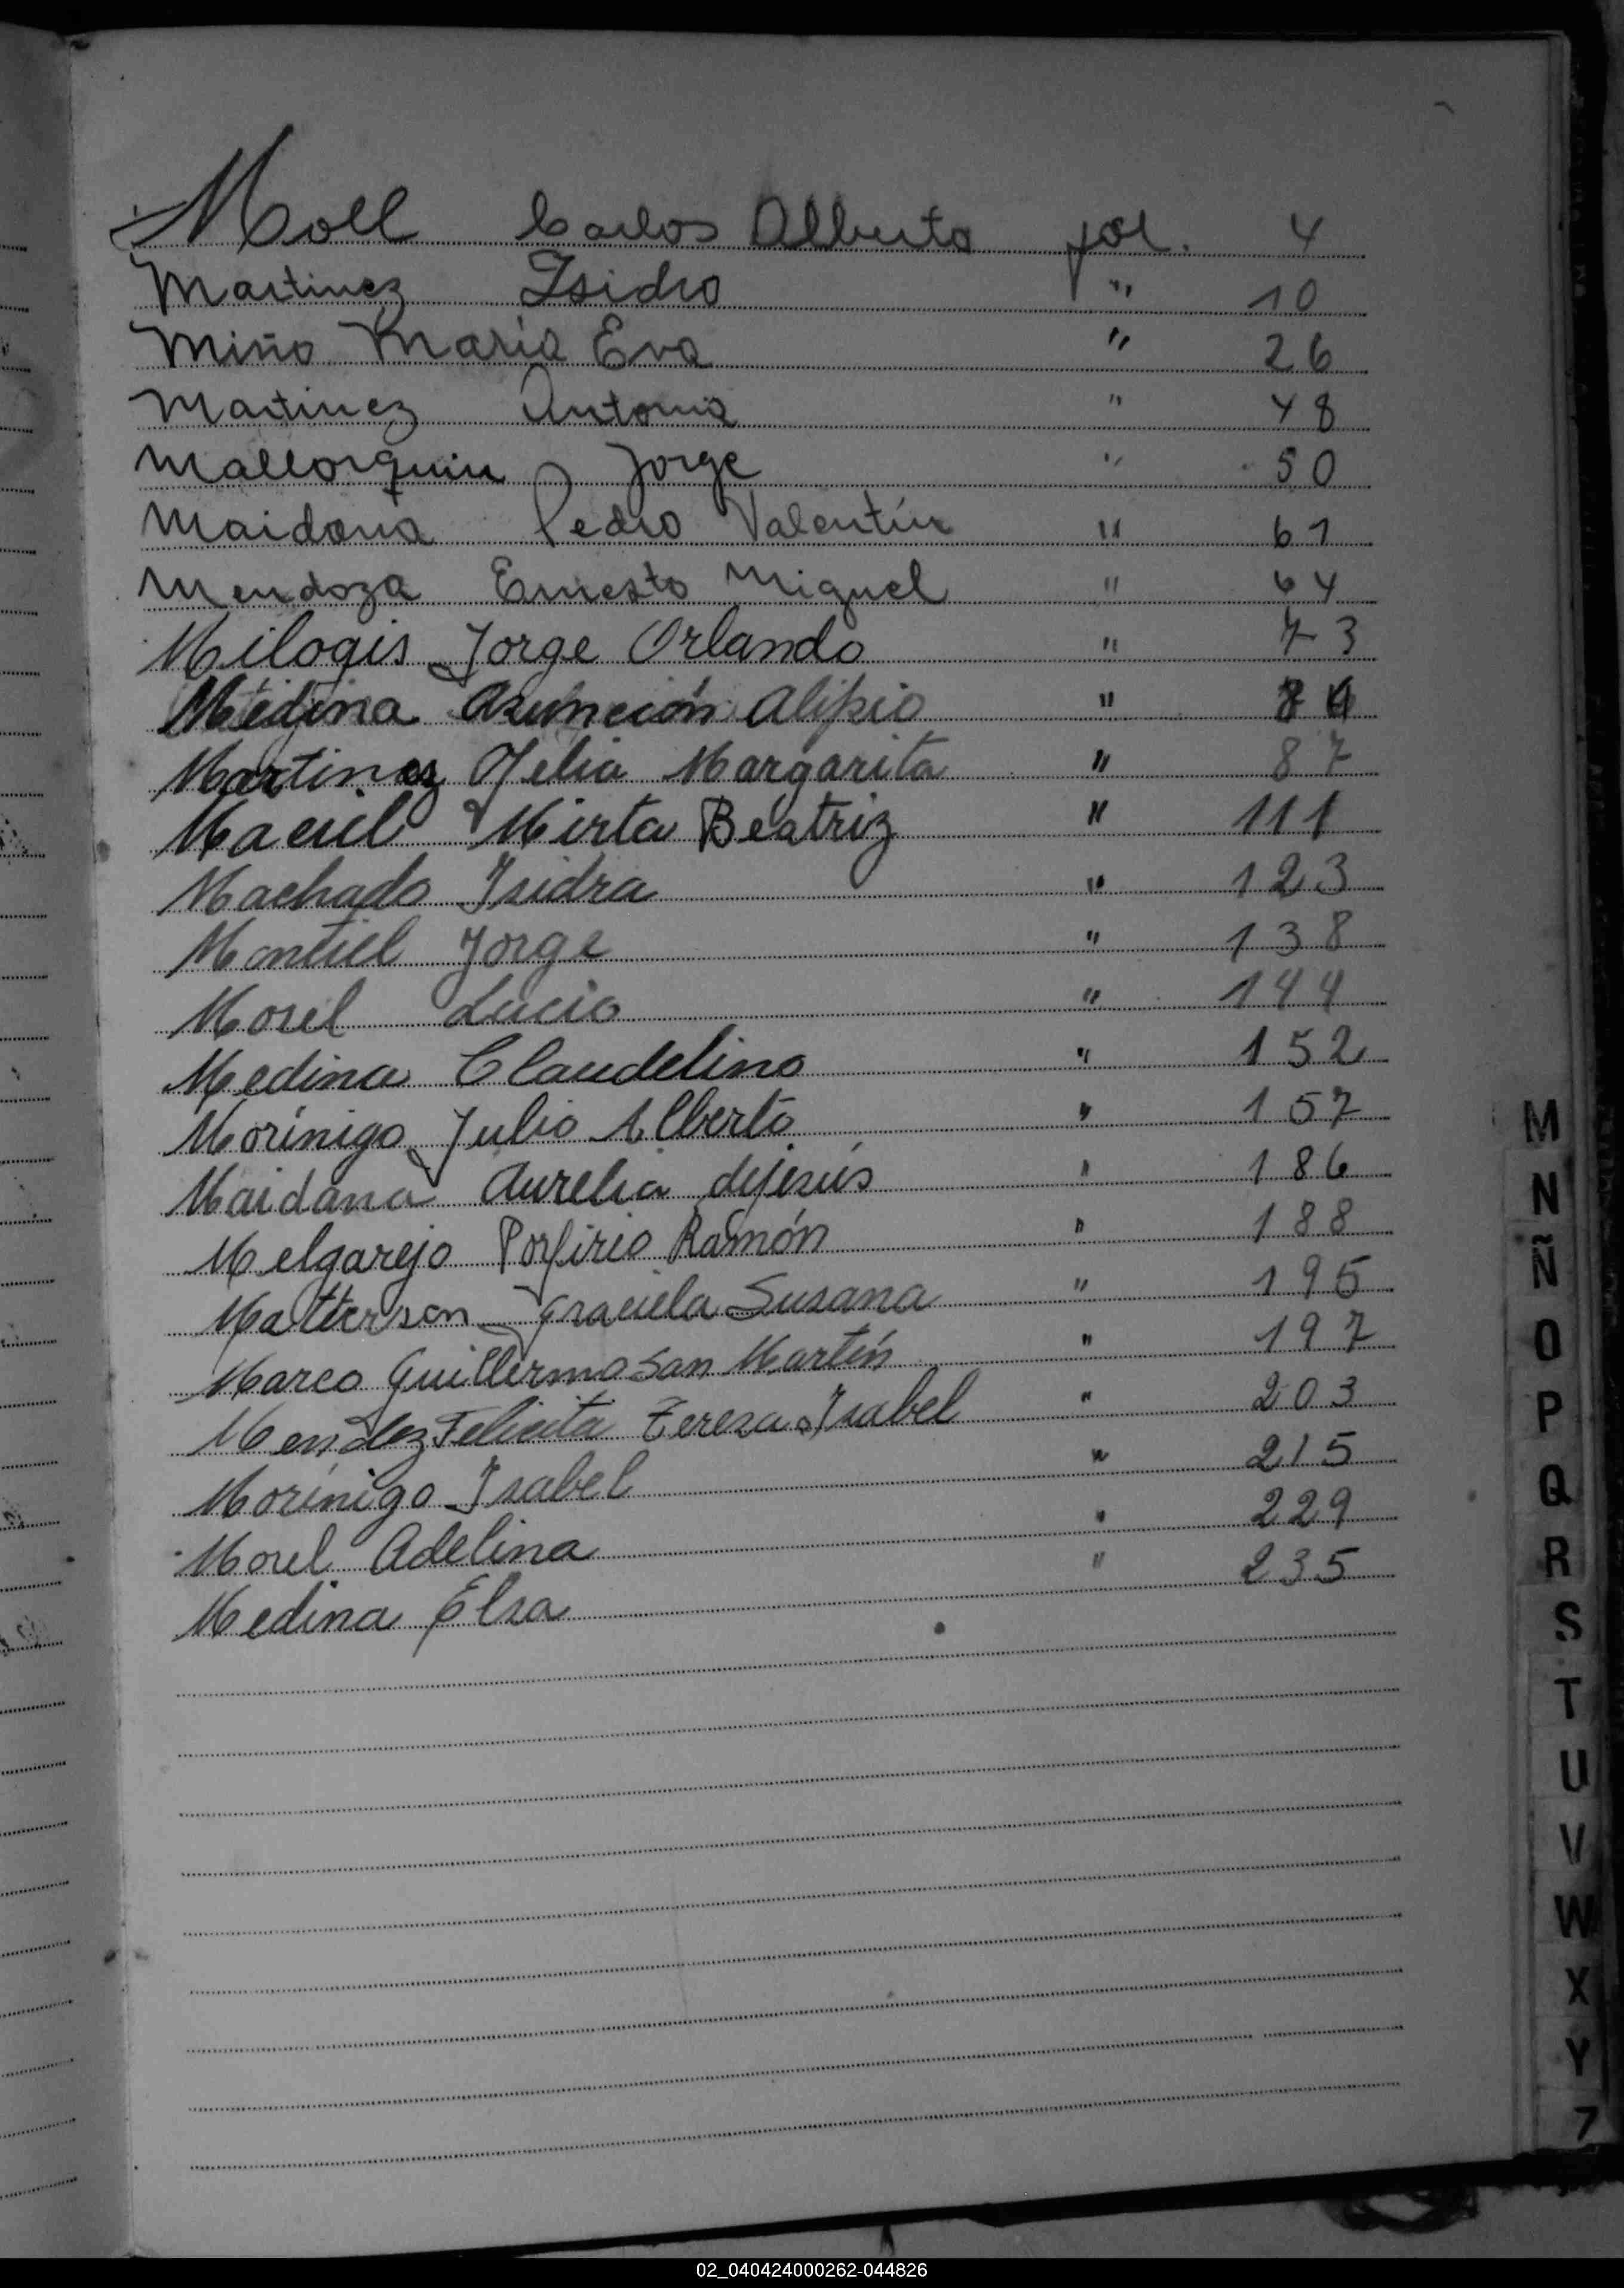 Moll Carlos Alberto fol. 4
Martinez Isidro " 10
Miño María Eva " 26
Martinez Antonia " 48
Mallorquin Jorge " 50
Maidana Pedro Valentín " 61
Mendoza Ernesto Miguel " 64
Milogis Jorge Orlando " 73
Medina Asunción Alipio "
Martinez Margarita " 87
Maciel Mirta Beatriz " 111
Machado Isidra " 123
Montiel Jorge " 138
Morel Lucio " 144
Medina Claudelino " 152
Morínigo Julio Alberto " 157
Maidana Aurelia dejesús " 186
Melgarejo Porfirio Ramón " 188
Matterson Graciela Susana " 195
Marco Guillermo San Martín " 197
Mendez Felicita Teresa Isabel " 203
Morínigo Isabel " 215
Morel Adelina " 229
Medina Elsa " 235
M
N
Ñ
O
P
Q
R
S
T
U
V
W
X
Y
Z
02_040424000262-044826